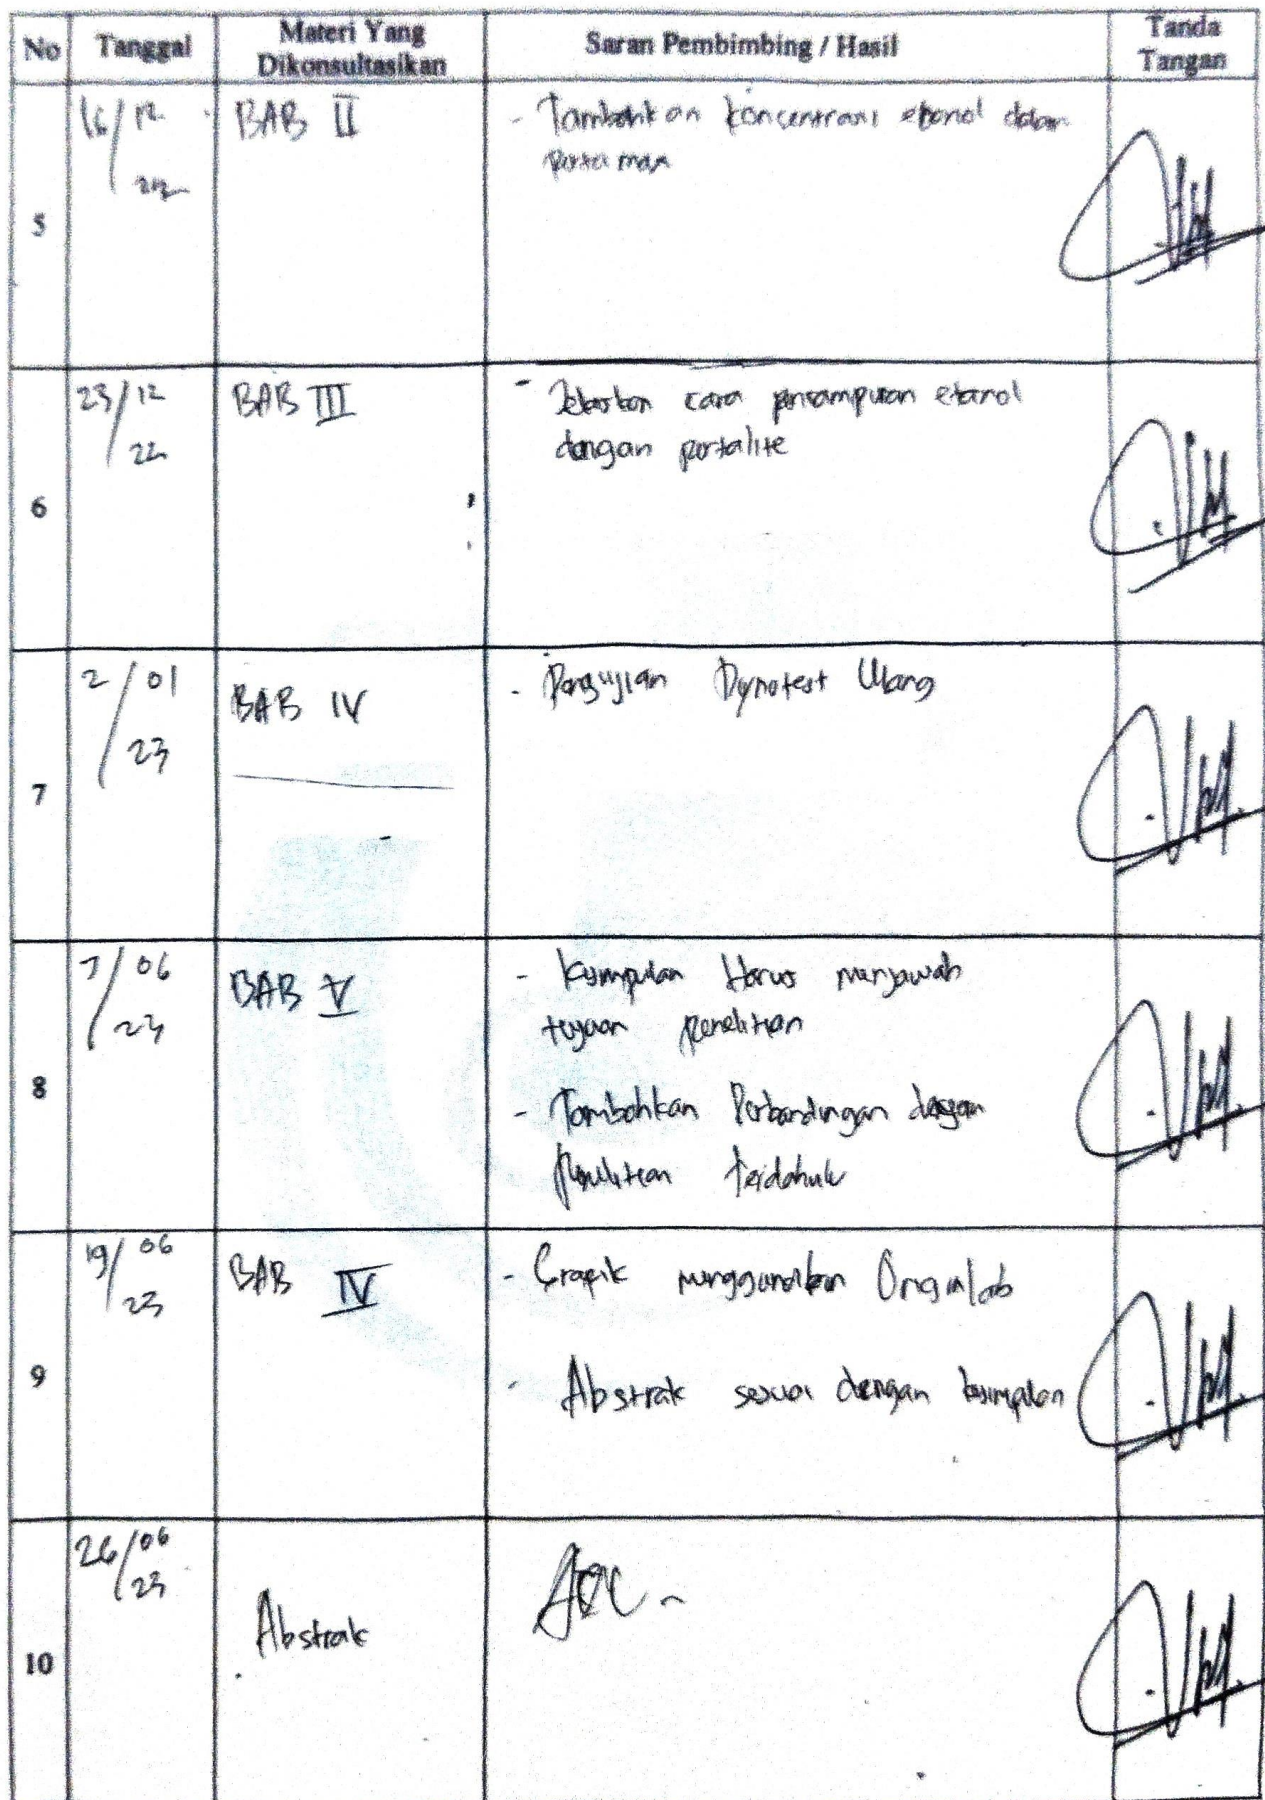 No Tanggal Materi Yang Dikonsultasikan Saran Pembimbing / Hasil Tanda Tangan
5 16/12 22 BAB II - Tambahkan Konsentrasi etanol dalam
6 23/12 22 BAB III - Jelaskan cara pencampuran etanol
dengan pertalite
7 2/01 23 BAB IV - Pengujian Dynotest Ulang
8 7/06 23 BAB V - Kesimpulan Harus menjawab
tujuan penelitian
- Tambahkan Perbandingan dengan
Penelitian terdahulu
9 19/06 23 BAB IV - Grafik menggunakan Originlab
- Abstrak sesuai dengan kesimpulan
10 26/06 23 Abstrak ACC